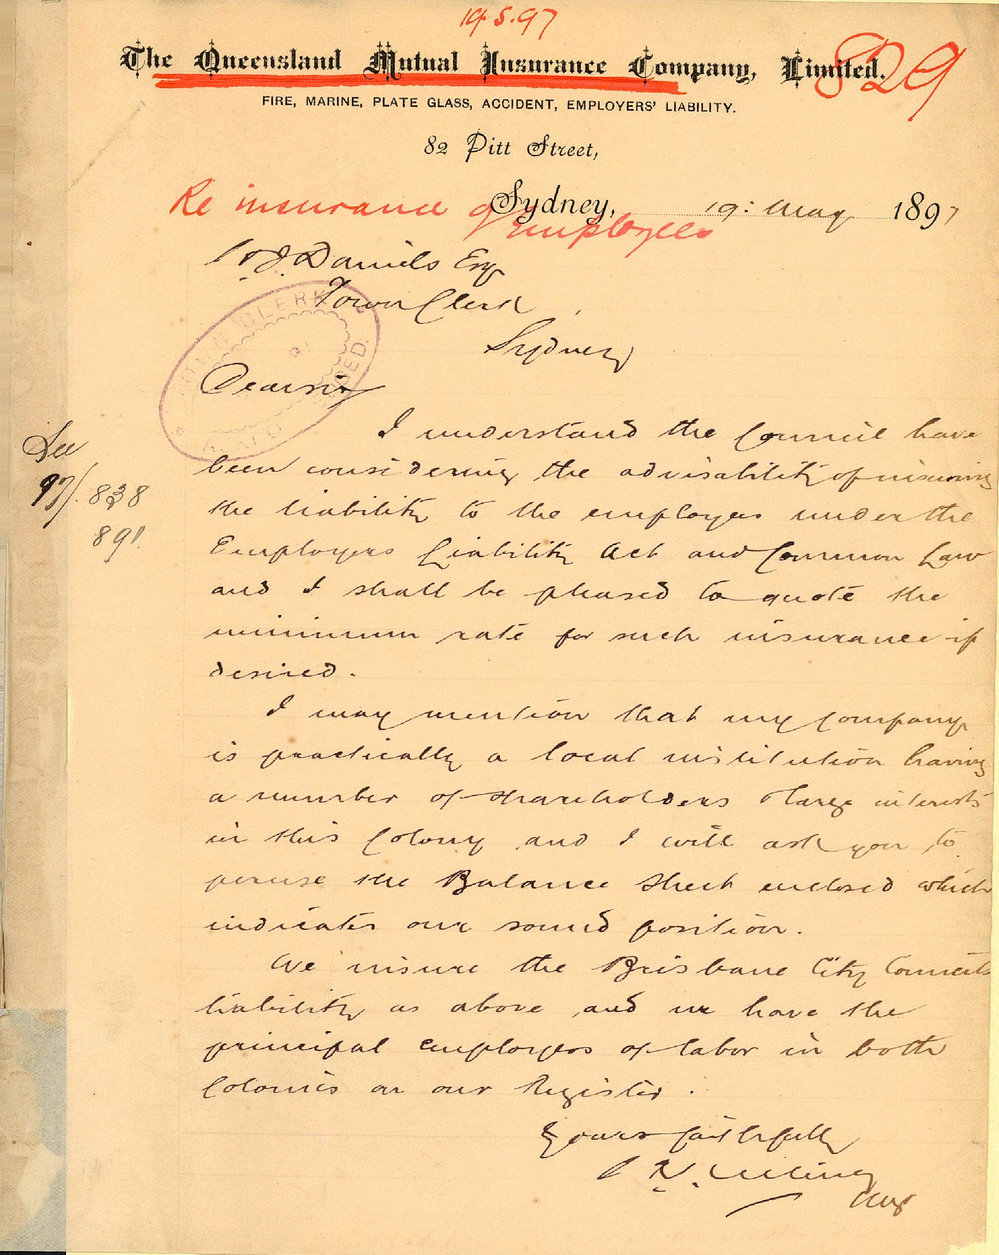 19.5.97
The Queensland Mutual Insurance Company, Limited.
829
FIRE, MARINE, PLATE GLASS, ACCIDENT, EMPLOYERS' LIABILITY.
82 Pitt Street,
Sydney, 19: May 1897
Re insurance of Employees
Daniels Esq
Town Clerk
Sydney
TOWN CLERK
Dear sir
I understand the Council have
been considering the advisability of insuring
the liability to the employes under the
Employers Liability Act and Common Law
and I shall be pleased to quote the
minimum rate for such insurance if
desired.
See
97/. 838
891.
I may mention that my company
is practically a local institution having
a number of shareholders & large interests
in this Colony and I will ask you to
peruse the Balance Sheet enclosed which
indicates our sound position.
We insure the Brisbane City Councils
liability as above and we have the
principal employers of labor in both
Colonies on our Register.
Yours faithfully